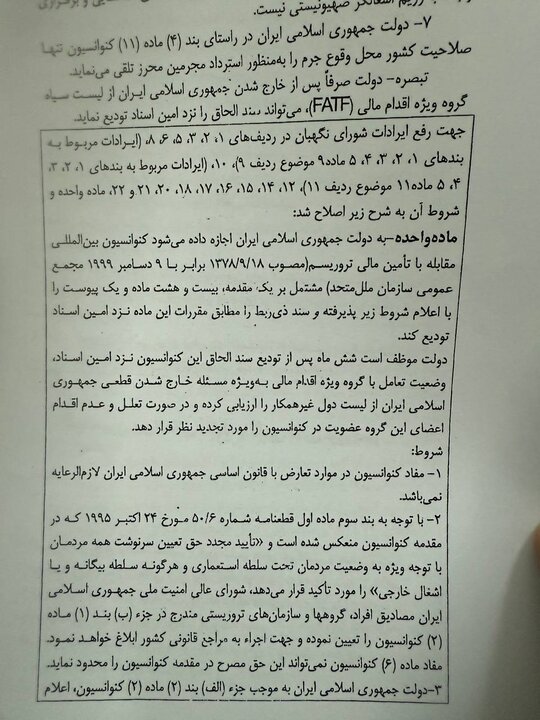 رژیم اشغالگر صهیونیستی نیست.
۷- دولت جمهوری اسلامی ایران در راستای بند (۴) ماده (۱۱) کنوانسیون تنها
صلاحیت کشور محل وقوع جرم را به‌منظور استرداد مجرمین محرز تلقی می‌نماید.
تبصره- دولت صرفاً پس از خارج شدن جمهوری اسلامی ایران از لیست سیاه
گروه ویژه اقدام مالی (FATF)، می‌تواند سند الحاق را نزد امین اسناد تودیع نماید.
جهت رفع ایرادات شورای نگهبان در ردیف‌های ۱، ۲، ۳، ۵، ۶، ۸، (ایرادات مربوط به
بندهای ۱، ۲، ۳، ۴، ۵ ماده۹ موضوع ردیف ۹)، ۱۰، (ایرادات مربوط به بندهای ۱، ۲، ۳،
۴، ۵ ماده۱۱ موضوع ردیف ۱۱)، ۱۲، ۱۴، ۱۵، ۱۶، ۱۷، ۱۸، ۲۰، ۲۱ و ۲۲، ماده واحده و
شروط آن به شرح زیر اصلاح شد:
ماده‌واحده-به دولت جمهوری اسلامی ایران اجازه داده می‌شود کنوانسیون بین‌المللی
مقابله با تأمین مالی تروریسم(مصوب ۱۳۷۸/۹/۱۸ برابر با ۹ دسامبر ۱۹۹۹ مجمع
عمومی سازمان ملل‌متحد) مشتمل بر یک مقدمه، بیست و هشت ماده و یک پیوست را
با اعلام شروط زیر پذیرفته و سند ذی‌ربط را مطابق مقررات این ماده نزد امین اسناد
تودیع کند.
دولت موظف است شش ماه پس از تودیع سند الحاق این کنوانسیون نزد امین اسناد،
وضعیت تعامل با گروه ویژه اقدام مالی به‌ویژه مسئله خارج شدن قطعی جمهوری
اسلامی ایران از لیست دول غیرهمکار را ارزیابی کرده و در صورت تعلل و عدم اقدام
اعضای این گروه عضویت در کنوانسیون را مورد تجدید نظر قرار دهد.
شروط:
۱- مفاد کنوانسیون در موارد تعارض با قانون اساسی جمهوری اسلامی ایران لازم‌الرعایه
نمی‌باشد.
۲- با توجه به بند سوم ماده اول قطعنامه شماره ۵۰/۶ مورخ ۲۴ اکتبر ۱۹۹۵ که در
مقدمه کنوانسیون منعکس شده است و «تأیید مجدد حق تعیین سرنوشت همه مردمان
با توجه ویژه به وضعیت مردمان تحت سلطه استعماری و هرگونه سلطه بیگانه و یا
اشغال خارجی» را مورد تأکید قرار می‌دهد، شورای عالی امنیت ملی جمهوری اسلامی
ایران مصادیق افراد، گروهها و سازمان‌های تروریستی مندرج در جزء (ب) بند (۱) ماده
(۲) کنوانسیون را تعیین نموده و جهت اجراء به مراجع قانونی کشور ابلاغ خواهد نمود.
مفاد ماده (۶) کنوانسیون نمی‌تواند این حق مصرح در مقدمه کنوانسیون را محدود نماید.
۳-دولت جمهوری اسلامی ایران به موجب جزء (الف) بند (۲) ماده (۲) کنوانسیون، اعلام